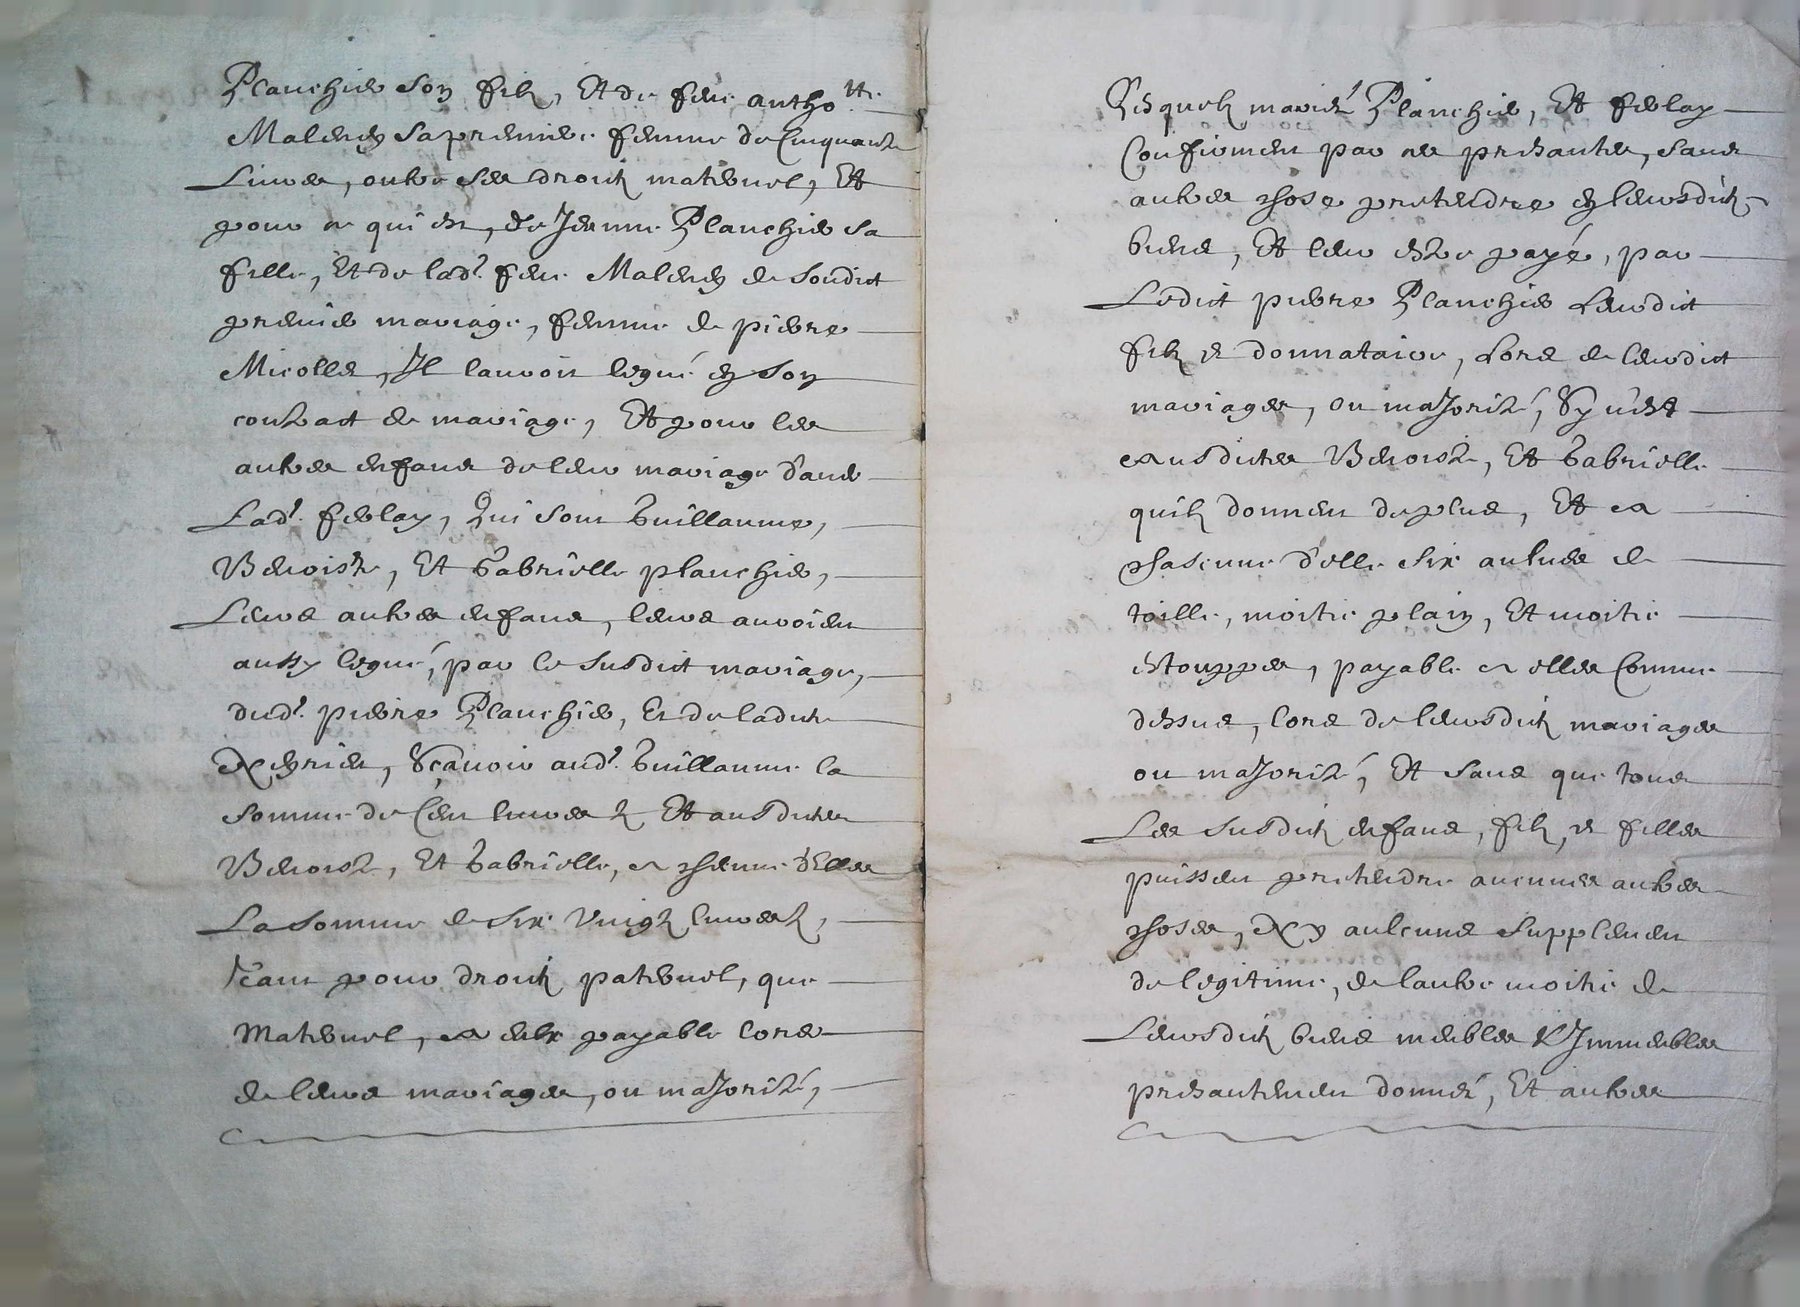 Planchier son filz, Et de feue antho.tte
Malerey sa premiere femme de Cinquante
Livres, outre ses droitz maternel, Et
pour ce qui est, de Jeanne Planchier sa
fille, Et de lad.t feue Malerey de soudict
premier mariage, femme de pierre
Micolles, Il lauroit legué en son
contract de mariage, Et pour les
autres enfans de leur mariage d'avec
Lad.t ferlay, Qui sont Guillaume,
Benoiste, Et Gabrielle planchier,
Leurs autres enfans, leurs auroient
aussy legué, par le susdict mariage,
dud.t pierre Planchier, Et de ladicte
Sçavoir aud.t Guillaume la
somme de Cent livres Et ausdictes
Benoiste, Et Gabrielle, a chascune d'Elles
La somme de six vingtz livres,
tant pour droitz paternel, que
Maternel, a eulx payable lors
de leurs mariages, ou majorité,
Lesquelz mariez Planchier, Et ferlay
Confirment par ces presantes, sans
autres chose pretendre en leursdictz
biens, Et leur estre payé, par
Ledict pierre Planchier Leurdict
filz et donnataire, Lors de leurdict
mariages, ou majorité, Sy n'est
ausdictes Benoiste, Et Gabrielle
quilz donnent de plus, Et a
chascune d'elle six aulnes de
toille, moitie plain, Et moitie
estouppes, payable a elles Comme
dessus, lors de leursdictz mariages
ou majorité, Et sans que tous
Les susdictz enfans, filz, et filles
puissent pretendre aucunes autres
choses, Ny aulcuns supplement
de legitime, de lautre moitie de
Leursdictz biens meubles & Immeubles
presantement donnés, Et autres